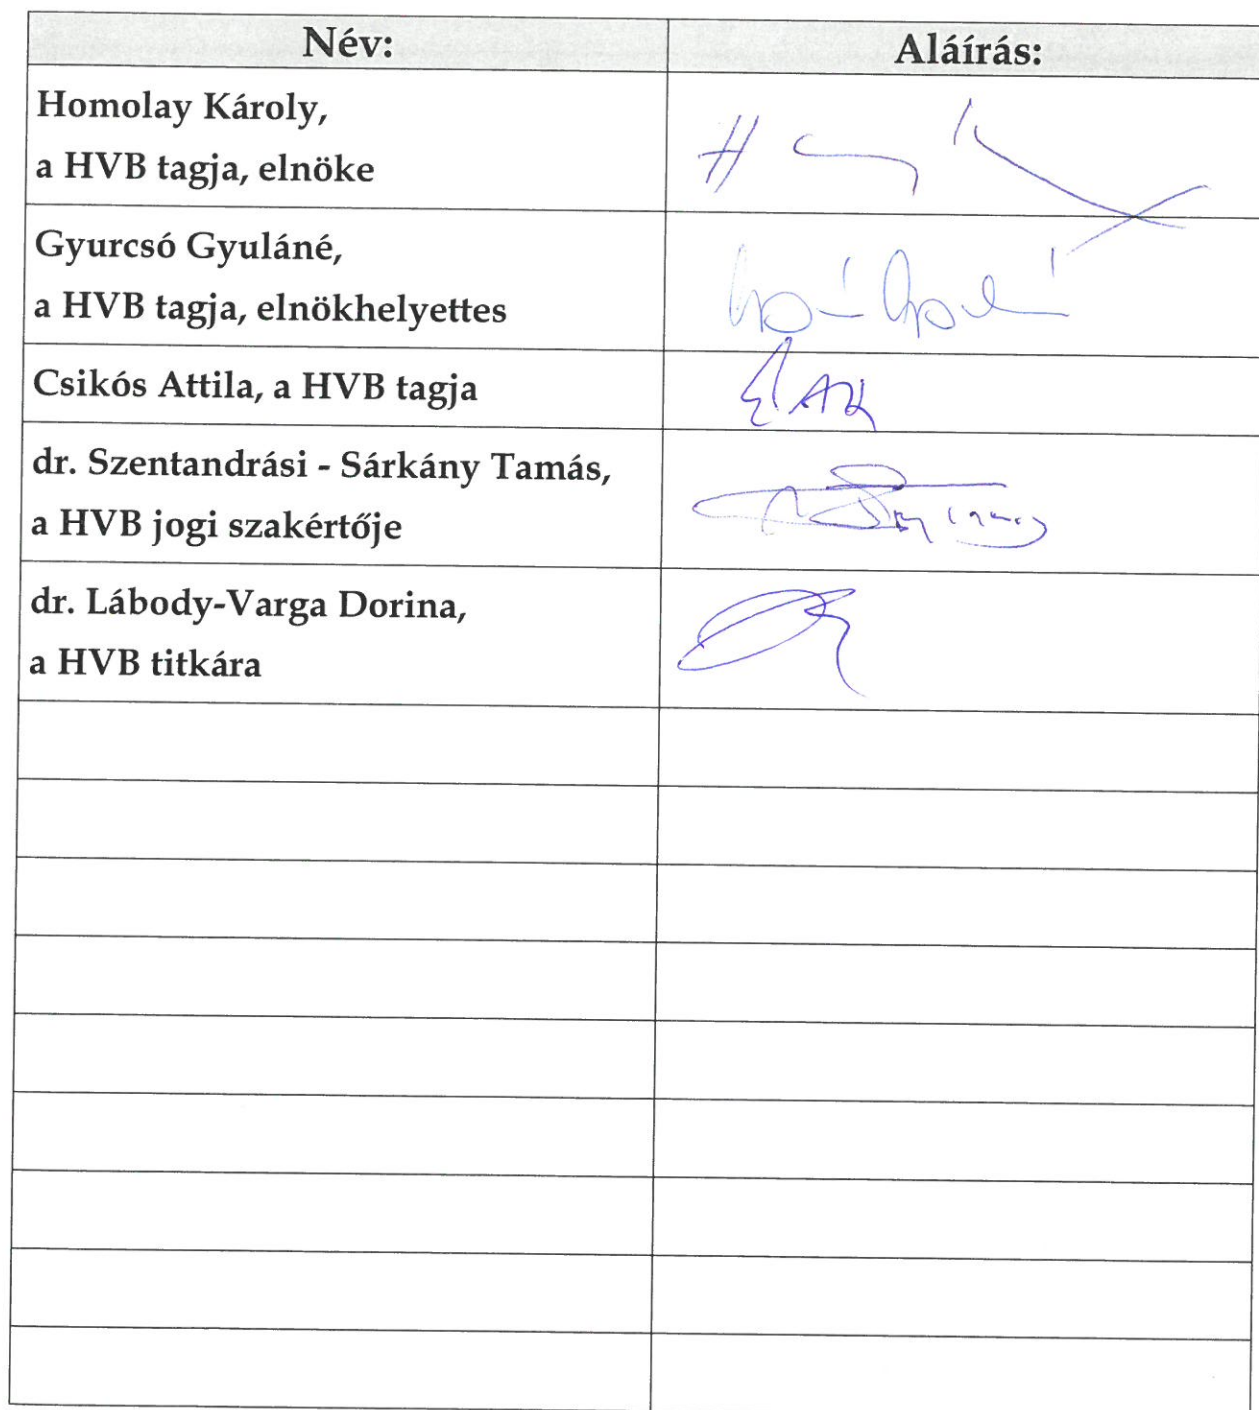 Név: Aláírás:
Homolay Károly,
a HVB tagja, elnöke
Gyurcsó Gyuláné,
a HVB tagja, elnökhelyettes
Csikós Attila, a HVB tagja
dr. Szentandrási - Sárkány Tamás,
a HVB jogi szakértője
dr. Lábody-Varga Dorina,
a HVB titkára